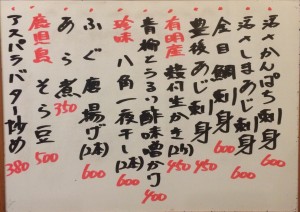 活さかんぱち刺身 600
活さしまあじ刺身 600
金目鯛刺身 600
豊後あじ刺身 450
有明産 殻付生かき(2ケ) 450
青柳とうるい酢味噌かけ 400
珍味 八角一夜干し(1本) 600
ふぐ唐揚げ(2本) 600
あら煮 350
鹿児島 そら豆 500
アスパラバター炒め 380